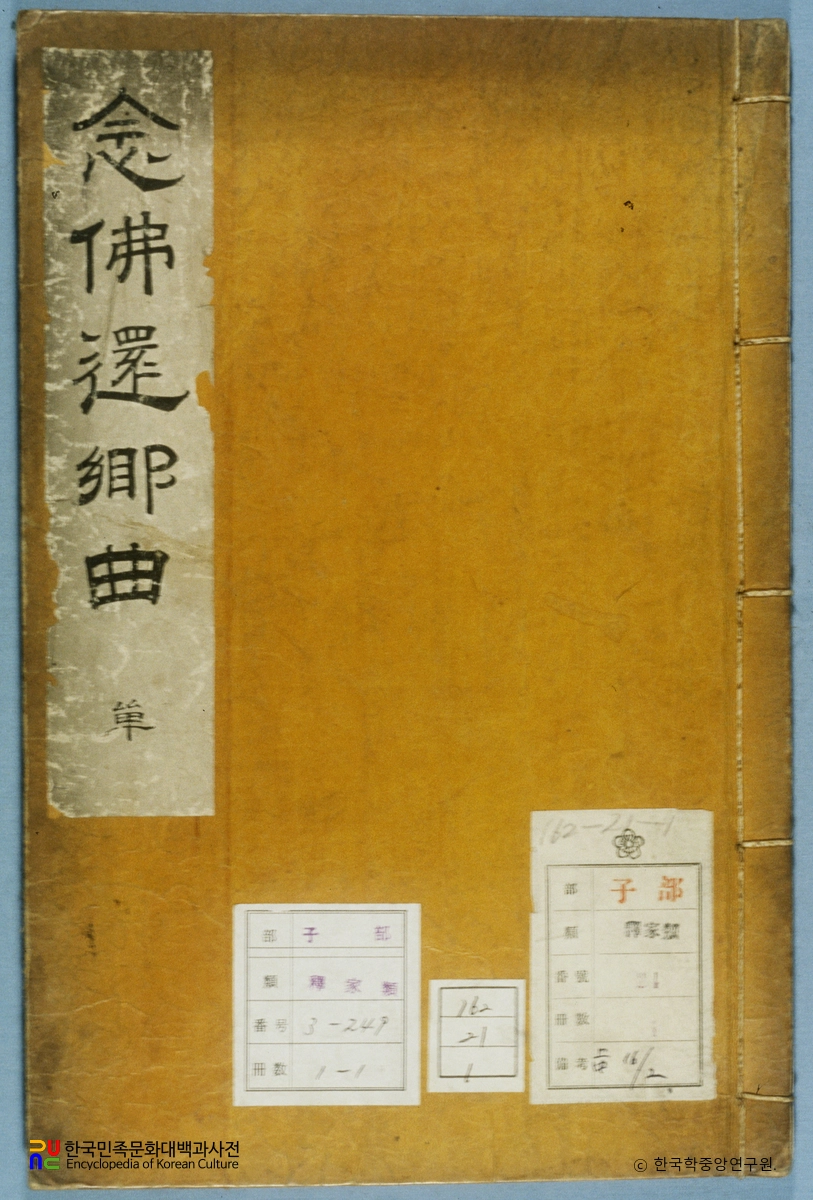 念佛還鄕曲
單
部 子 部
類 釋家類
番号 3-249
冊数 1-1
162
21
1
162-21-1
部 子部
類 釋家類
番號 21
冊數 1
備考
한국민족문화대백과사전
Encyclopedia of Korean Culture
© 한국학중앙연구원.